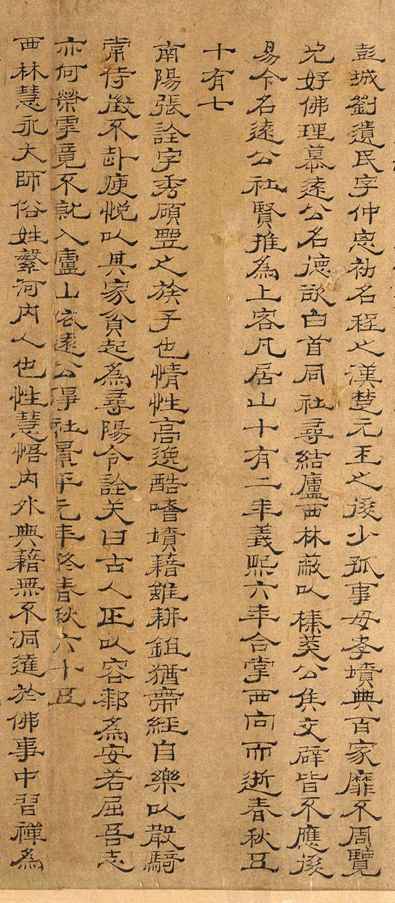 彭城劉遺民字仲思初名程之漢楚元王之後少孤事母孝墳典百家靡不周覽
尤好佛理慕遠公名德欲白首同社尋結廬西林蔽以榛莽公侯交辟皆不應後
易今名遠公社賢推為上客凡居山十有二年義熙六年合掌西向而逝春秋五
十有七
南陽張詮字秀碩豐之族子也情性高逸酷嗜墳藉雖耕鉏猶帶經自樂以散騎
常侍徵不赴庾悅以其家貧起為尋陽令詮笑曰古人正以容厀為安若屈吾志
亦何榮乎竟不就入廬山依遠公淨社景平元年終春秋六十五
西林慧永大師俗姓繫河內人也性慧悟內外典藉無不洞達於佛事中習禪為